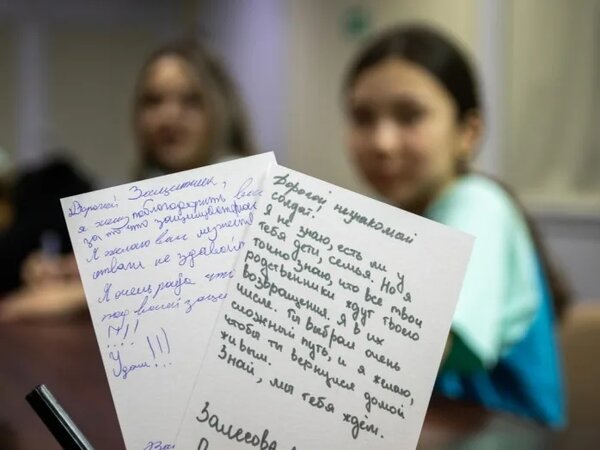 Дорогой Защитник,
я хочу поблагодарить вас
за то что защищаете
Я желаю вам мужества
отваги и
Я очень рада что
под вашей
Удачи!!!
Дорогой незнакомый
солдат!
Я не знаю, есть ли у
тебя дети, семья. Но я
точно знаю, что все твои
родственники ждут твоего
возвращения. Я в их
числе. Ты выбрал очень
сложный путь, и я желаю,
чтобы ты вернулся домой
живым.
Знай, мы тебя ждём.